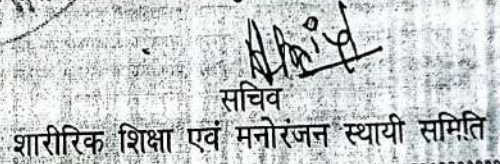 सचिव
शारीरिक शिक्षा एवं मनोरंजन स्थायी समिति